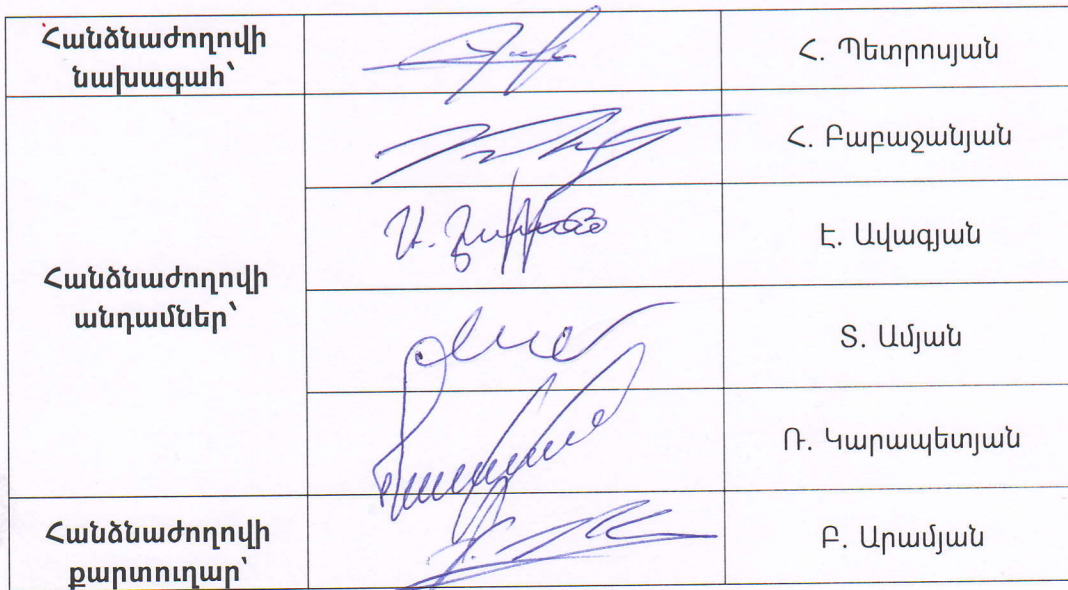 Հանձնաժողովի
նախագահ՝
Հ. Պետրոսյան
Հանձնաժողովի
անդամներ՝
Հ. Բաբաջանյան
Է. Ավագյան
Տ. Ամյան
Ռ. Կարապետյան
Հանձնաժողովի
քարտուղար՝
Բ. Արամյան